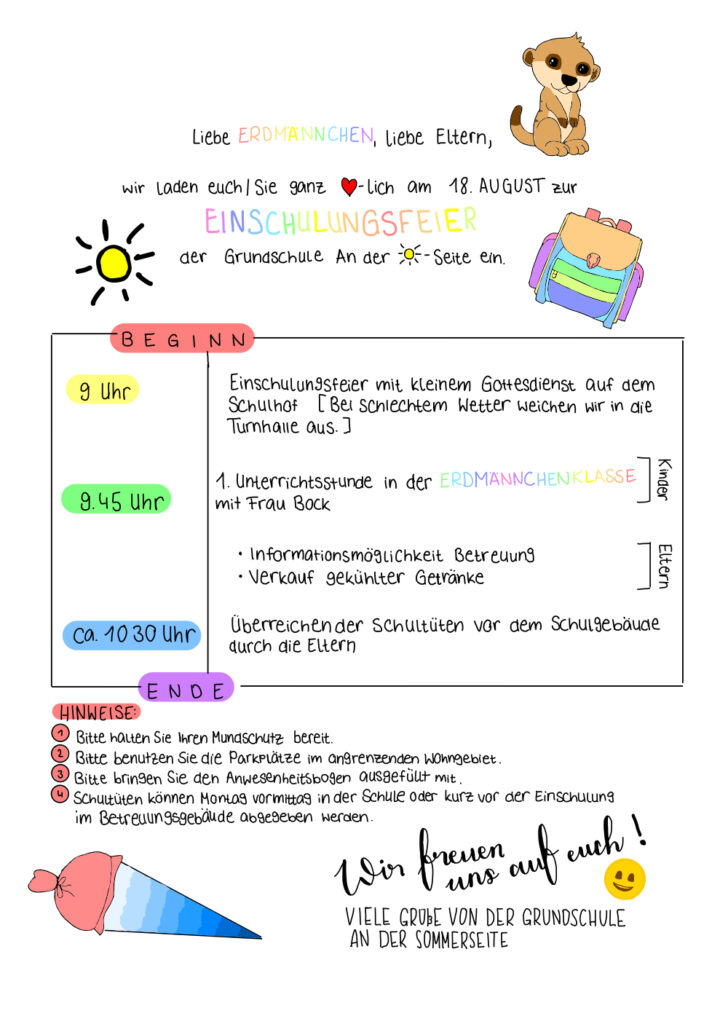 Liebe ERDMÄNNCHEN, liebe Eltern,
wir laden euch/Sie ganz ❤-lich am 18. AUGUST zur
EINSCHULUNGSFEIER
der Grundschule An der ☀-Seite ein.
BEGINN
9 Uhr
Einschulungsfeier mit kleinem Gottesdienst auf dem
Schulhof [Bei schlechtem Wetter weichen wir in die
Turnhalle aus.]
9.45 Uhr
1. Unterrichtsstunde in der ERDMÄNNCHENKLASSE
mit Frau Bock
Kinder
• Informationsmöglichkeit Betreuung
• Verkauf gekühlter Getränke
Eltern
ca. 10 30 Uhr
Überreichen der Schultüten vor dem Schulgebäude
durch die Eltern
ENDE
HINWEISE:
1 Bitte halten Sie Ihren Mundschutz bereit.
2 Bitte benutzen Sie die Parkplätze im angrenzenden Wohngebiet.
3 Bitte bringen Sie den Anwesenheitsbogen ausgefüllt mit.
4 Schultüten können Montag vormittag in der Schule oder kurz vor der Einschulung
im Betreuungsgebäude abgegeben werden.
Wir freuen
uns auf euch!
VIELE GRÜßE VON DER GRUNDSCHULE
AN DER SOMMERSEITE